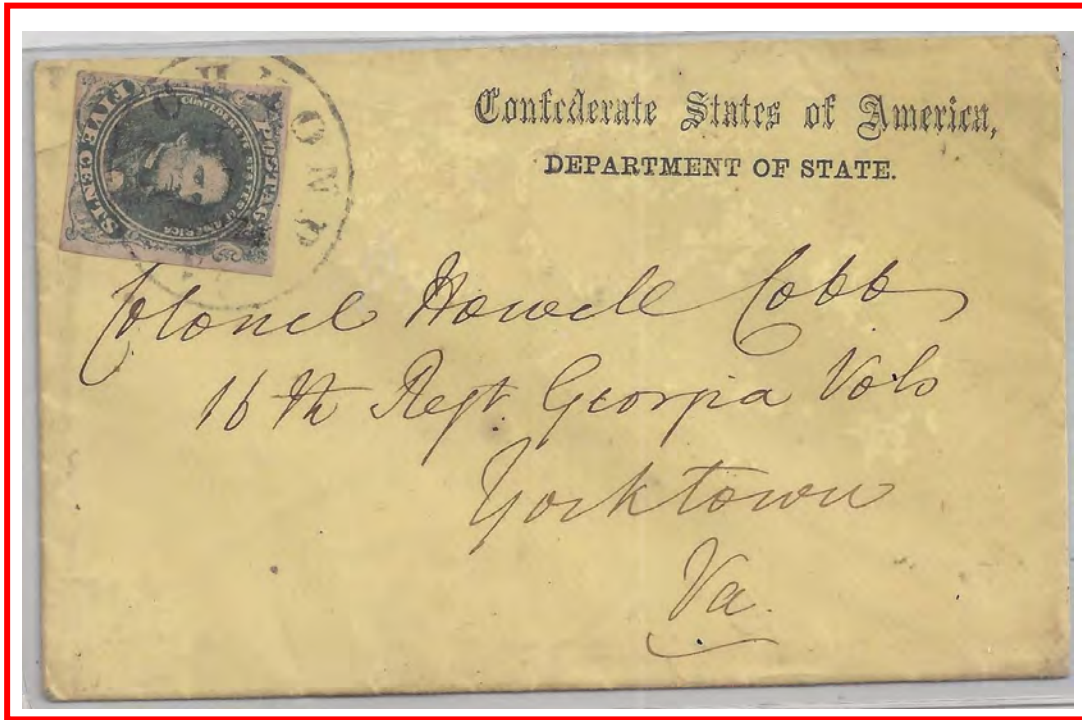 Confederate States of America,
DEPARTMENT OF STATE.
FIVE CENTS
CONFEDERATE STATES OF AMERICA
Colonel Howell Cobb
16th Regt. Georgia Vols
Yorktown
Va.